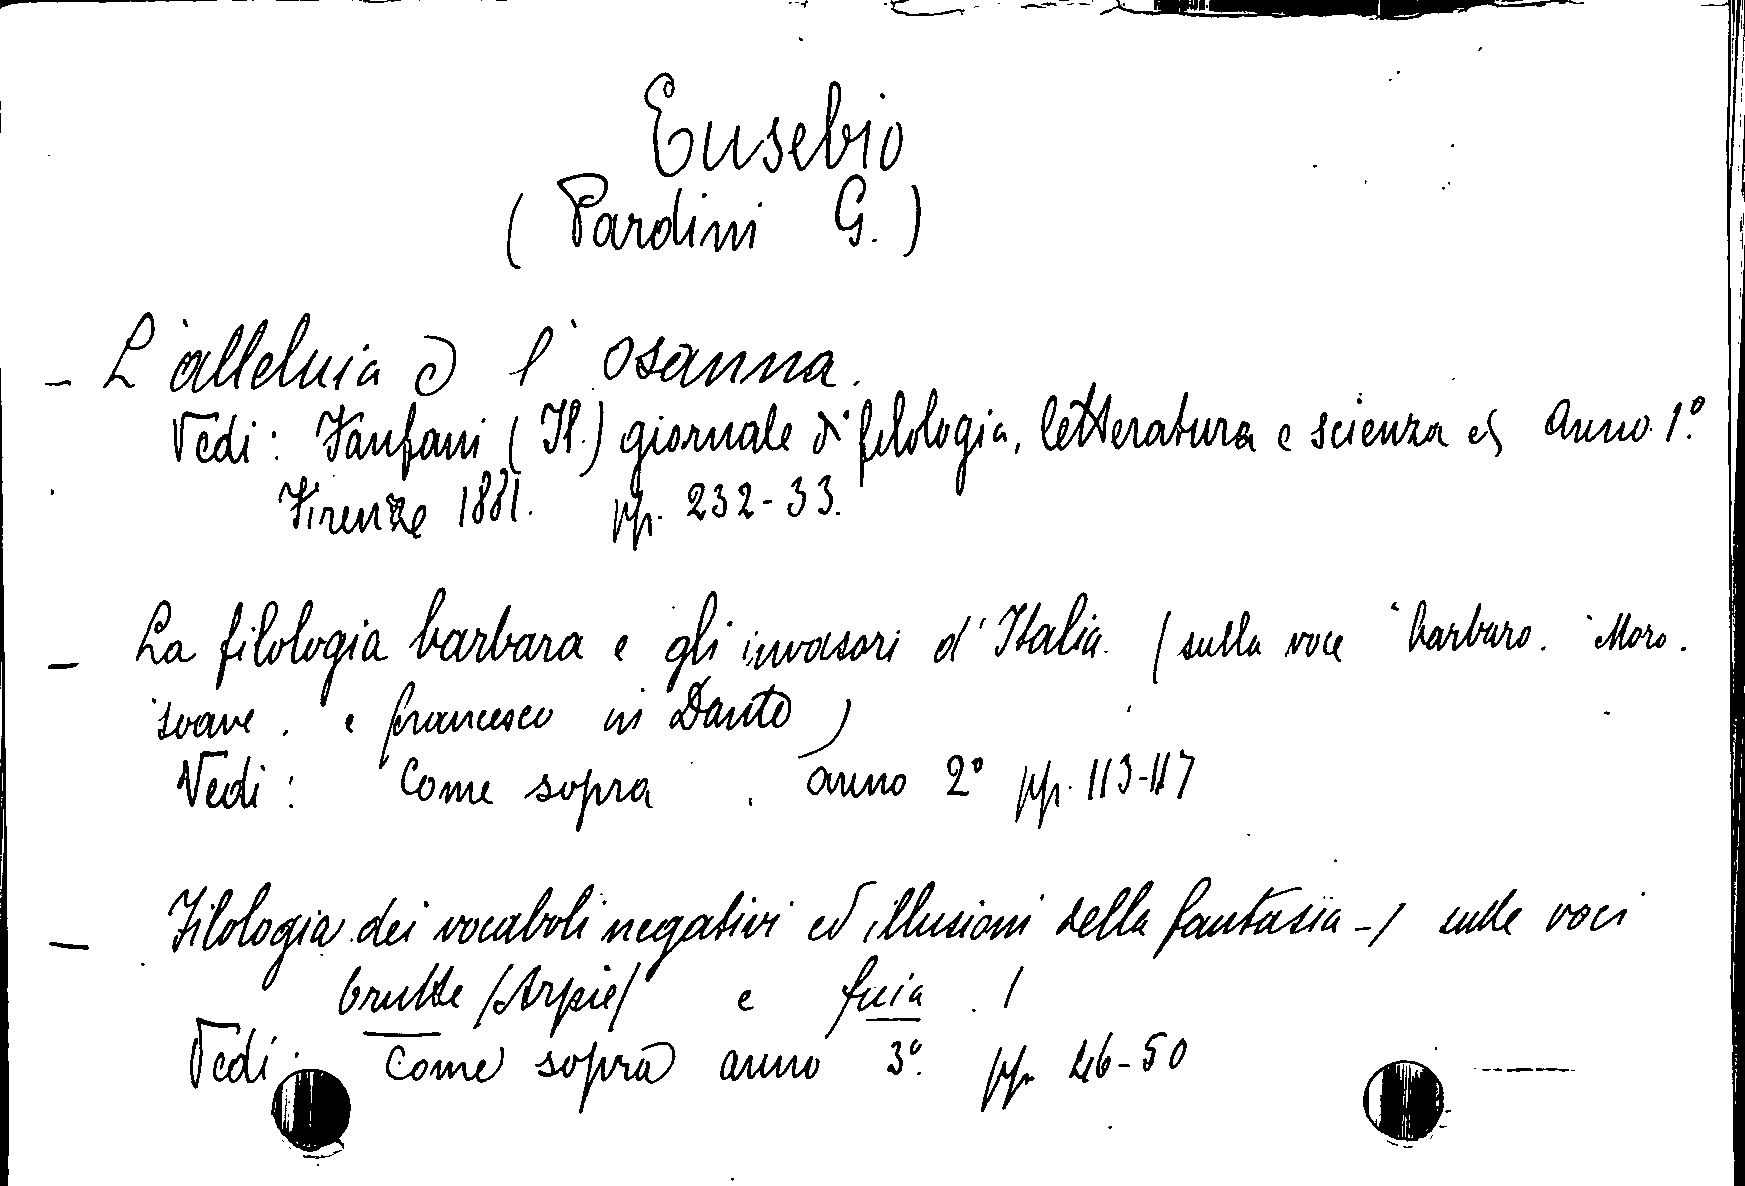 Eusebio
( Pardini G. )
- L'alleluia o l'osanna.
Vedi: Fanfani ( Il.) giornale di filologia, letteratura e scienza Anno 1.º
Firenze 1881. pp. 232-33.
- La filologia barbara e gli invasori d'Italia. ( sulla voce barbaro. Moro.
soave. e francesco in Dante )
Vedi: Come sopra. anno 2º pp. 113-117
- Filologia dei vocaboli negativi ed illusioni della fantasia - ( sulle voci
brutte (Arpie) e fuia. )
Vedi. Come sopra anno 3.º pp. 46-50